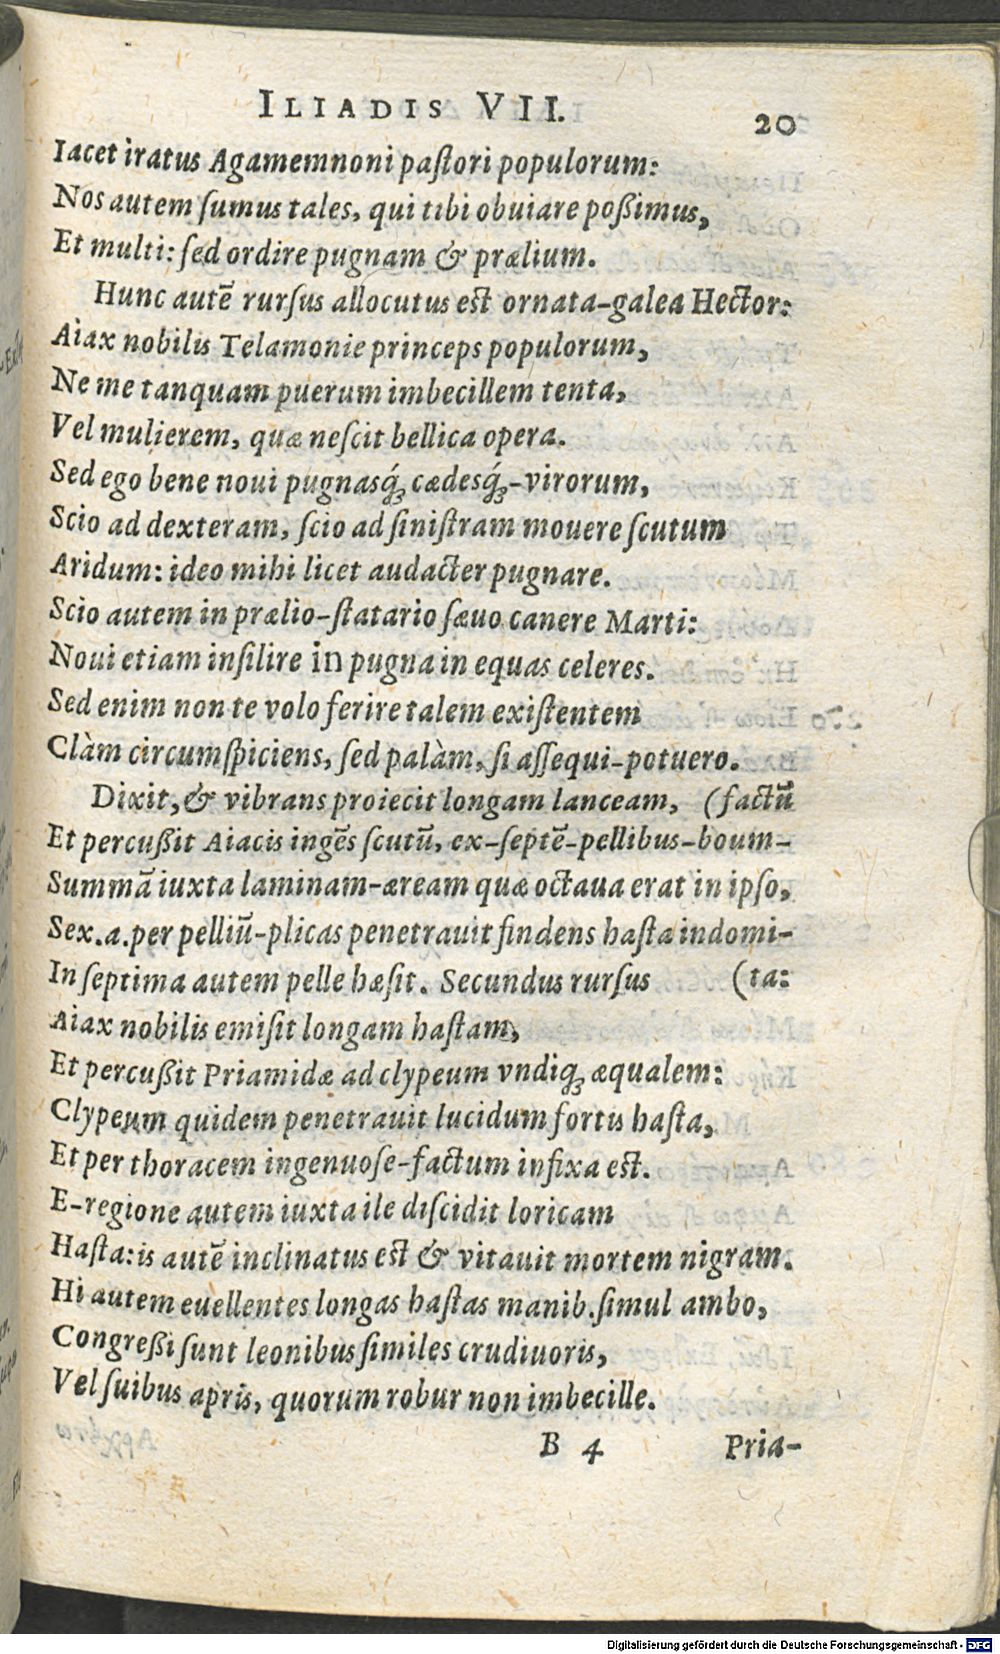 ILIADIS VII.
20
Iacet iratus Agamemnoni paſtori populorum:
Nos autem ſumus tales, qui tibi obuiare poßimus,
Et multi: ſed ordire pugnam & prælium.
Hunc autē rurſus allocutus eſt ornata-galea Hector:
Aiax nobilis Telamonie princeps populorum,
Ne me tanquam puerum imbecillem tenta,
Vel mulierem, quæ neſcit bellica opera.
Sed ego bene noui pugnasq́; cædesq́;-virorum,
Scio ad dexteram, ſcio ad ſiniſtram mouere ſcutum
Aridum: ideo mihi licet audacter pugnare.
Scio autem in prælio-ſtatario ſæuo canere Marti:
Noui etiam inſilire in pugna in equas celeres.
Sed enim non te volo ferire talem exiſtentem
Clàm circumſpiciens, ſed palàm, ſi aſſequi-potuero.
Dixit, & vibrans proiecit longam lanceam, (factū
Et percußit Aiacis ingēs ſcutū, ex-ſeptē-pellibus-boum-
Summā iuxta laminam-æream quæ octaua erat in ipſo,
Sex.a.per pelliū-plicas penetrauit findens haſta indomi-
In ſeptima autem pelle hæſit. Secundus rurſus (ta:
Aiax nobilis emiſit longam haſtam,
Et percußit Priamidæ ad clypeum vndiq; æqualem:
Clypeum quidem penetrauit lucidum fortis haſta,
Et per thoracem ingenuoſe-factum infixa eſt.
E-regione autem iuxta ile diſcidit loricam
Haſta: is autē inclinatus eſt & vitauit mortem nigram.
Hi autem euellentes longas haſtas manib. ſimul ambo,
Congreßi ſunt leonibus ſimiles crudiuoris,
Vel ſuibus apris, quorum robur non imbecille.
B 4 Pria-
Digitalisierung gefördert durch die Deutsche Forschungsgemeinschaft - DFG